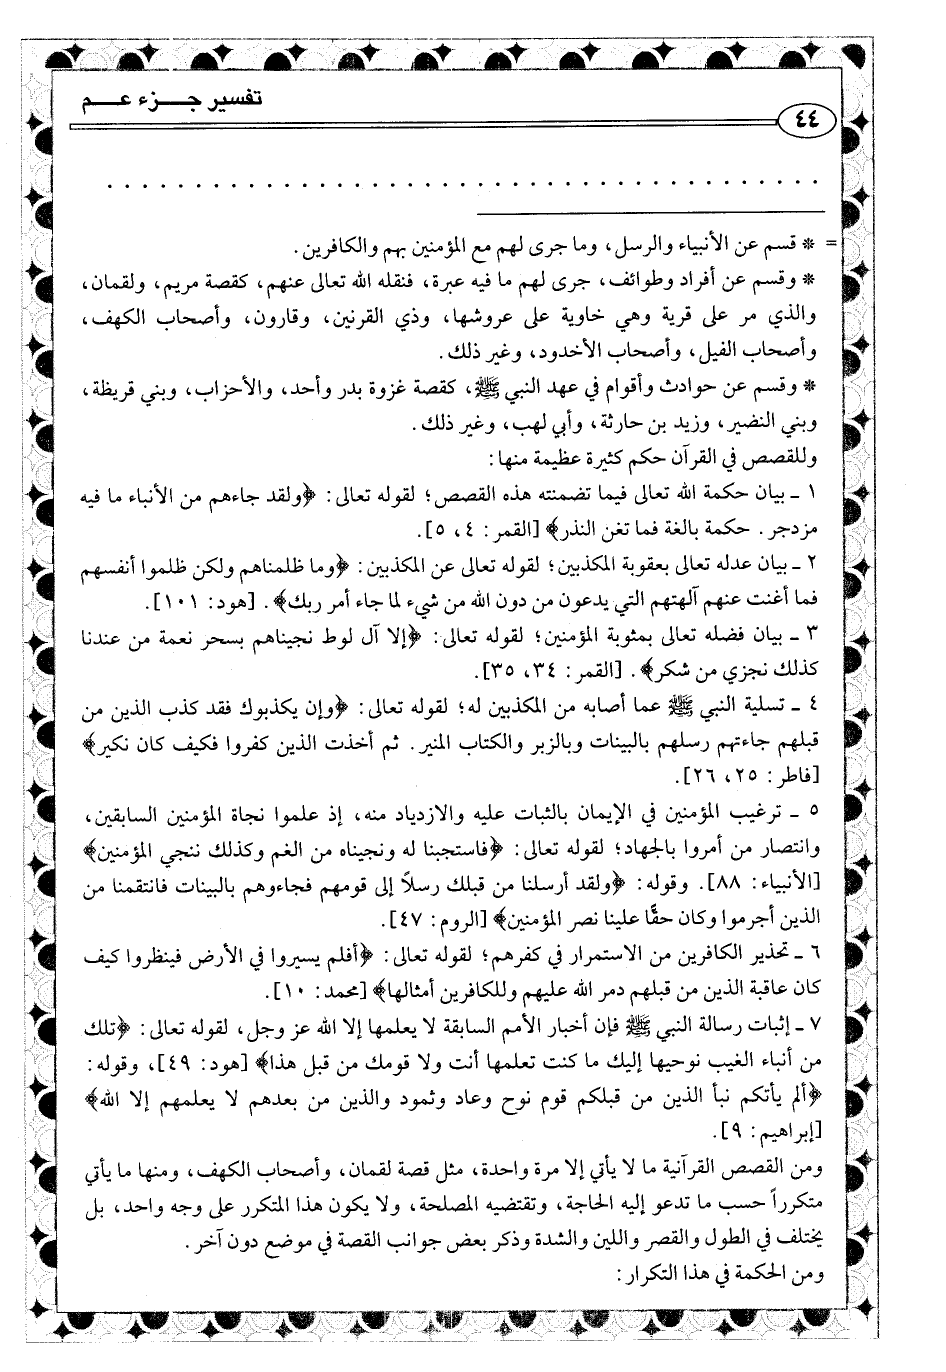 تفسير جـــزء عـــم
٤٤
. . . . . . . . . . . . . . . . . . . . . . . . . . . . . . . . . . . . . . . . .
= * قسم عن الأنبياء والرسل، وما جرى لهم مع المؤمنين بهم والكافرين.
* وقسم عن أفراد وطوائف، جرى لهم ما فيه عبرة، فنقله الله تعالى عنهم، كقصة مريم، ولقمان،
والذي مر على قرية وهي خاوية على عروشها، وذي القرنين، وقارون، وأصحاب الكهف،
وأصحاب الفيل، وأصحاب الأخدود، وغير ذلك.
* وقسم عن حوادث وأقوام في عهد النبي ﷺ، كقصة غزوة بدر وأحد، والأحزاب، وبني قريظة،
وبني النضير، وزيد بن حارثة، وأبي لهب، وغير ذلك.
وللقصص في القرآن حكم كثيرة عظيمة منها:
١ ـ بيان حكمة الله تعالى فيما تضمنته هذه القصص؛ لقوله تعالى: ﴿ولقد جاءهم من الأنباء ما فيه
مزدجر. حكمة بالغة فما تغن النذر﴾ [القمر: ٤، ٥].
٢ ـ بيان عدله تعالى بعقوبة المكذبين؛ لقوله تعالى عن المكذبين: ﴿وما ظلمناهم ولكن ظلموا أنفسهم
فما أغنت عنهم آلهتهم التي يدعون من دون الله من شيء لما جاء أمر ربك﴾. [هود: ١٠١].
٣ ـ بيان فضله تعالى بمثوبة المؤمنين؛ لقوله تعالى: ﴿إلا آل لوط نجيناهم بسحر نعمة من عندنا
كذلك نجزي من شكر﴾. [القمر: ٣٤، ٣٥].
٤ ـ تسلية النبي ﷺ عما أصابه من المكذبين له؛ لقوله تعالى: ﴿وإن يكذبوك فقد كذب الذين من
قبلهم جاءتهم رسلهم بالبينات وبالزبر والكتاب المنير. ثم أخذت الذين كفروا فكيف كان نكير﴾
[فاطر: ٢٥، ٢٦].
٥ ـ ترغيب المؤمنين في الإيمان بالثبات عليه والازدياد منه، إذ علموا نجاة المؤمنين السابقين،
وانتصار من أمروا بالجهاد؛ لقوله تعالى: ﴿فاستجبنا له ونجيناه من الغم وكذلك ننجي المؤمنين﴾
[الأنبياء: ٨٨]. وقوله: ﴿ولقد أرسلنا من قبلك رسلاً إلى قومهم فجاءوهم بالبينات فانتقمنا من
الذين أجرموا وكان حقًّا علينا نصر المؤمنين﴾ [الروم: ٤٧].
٦ ـ تحذير الكافرين من الاستمرار في كفرهم؛ لقوله تعالى: ﴿أفلم يسيروا في الأرض فينظروا كيف
كان عاقبة الذين من قبلهم دمر الله عليهم وللكافرين أمثالها﴾ [محمد: ١٠].
٧ ـ إثبات رسالة النبي ﷺ فإن أخبار الأمم السابقة لا يعلمها إلا الله عز وجل، لقوله تعالى: ﴿تلك
من أنباء الغيب نوحيها إليك ما كنت تعلمها أنت ولا قومك من قبل هذا﴾ [هود: ٤٩]، وقوله:
﴿ألم يأتكم نبأ الذين من قبلكم قوم نوح وعاد وثمود والذين من بعدهم لا يعلمهم إلا الله﴾
[إبراهيم: ٩].
ومن القصص القرآنية ما لا يأتي إلا مرة واحدة، مثل قصة لقمان، وأصحاب الكهف، ومنها ما يأتي
متكرراً حسب ما تدعو إليه الحاجة، وتقتضيه المصلحة، ولا يكون هذا المتكرر على وجه واحد، بل
يختلف في الطول والقصر واللين والشدة وذكر بعض جوانب القصة في موضع دون آخر.
ومن الحكمة في هذا التكرار: